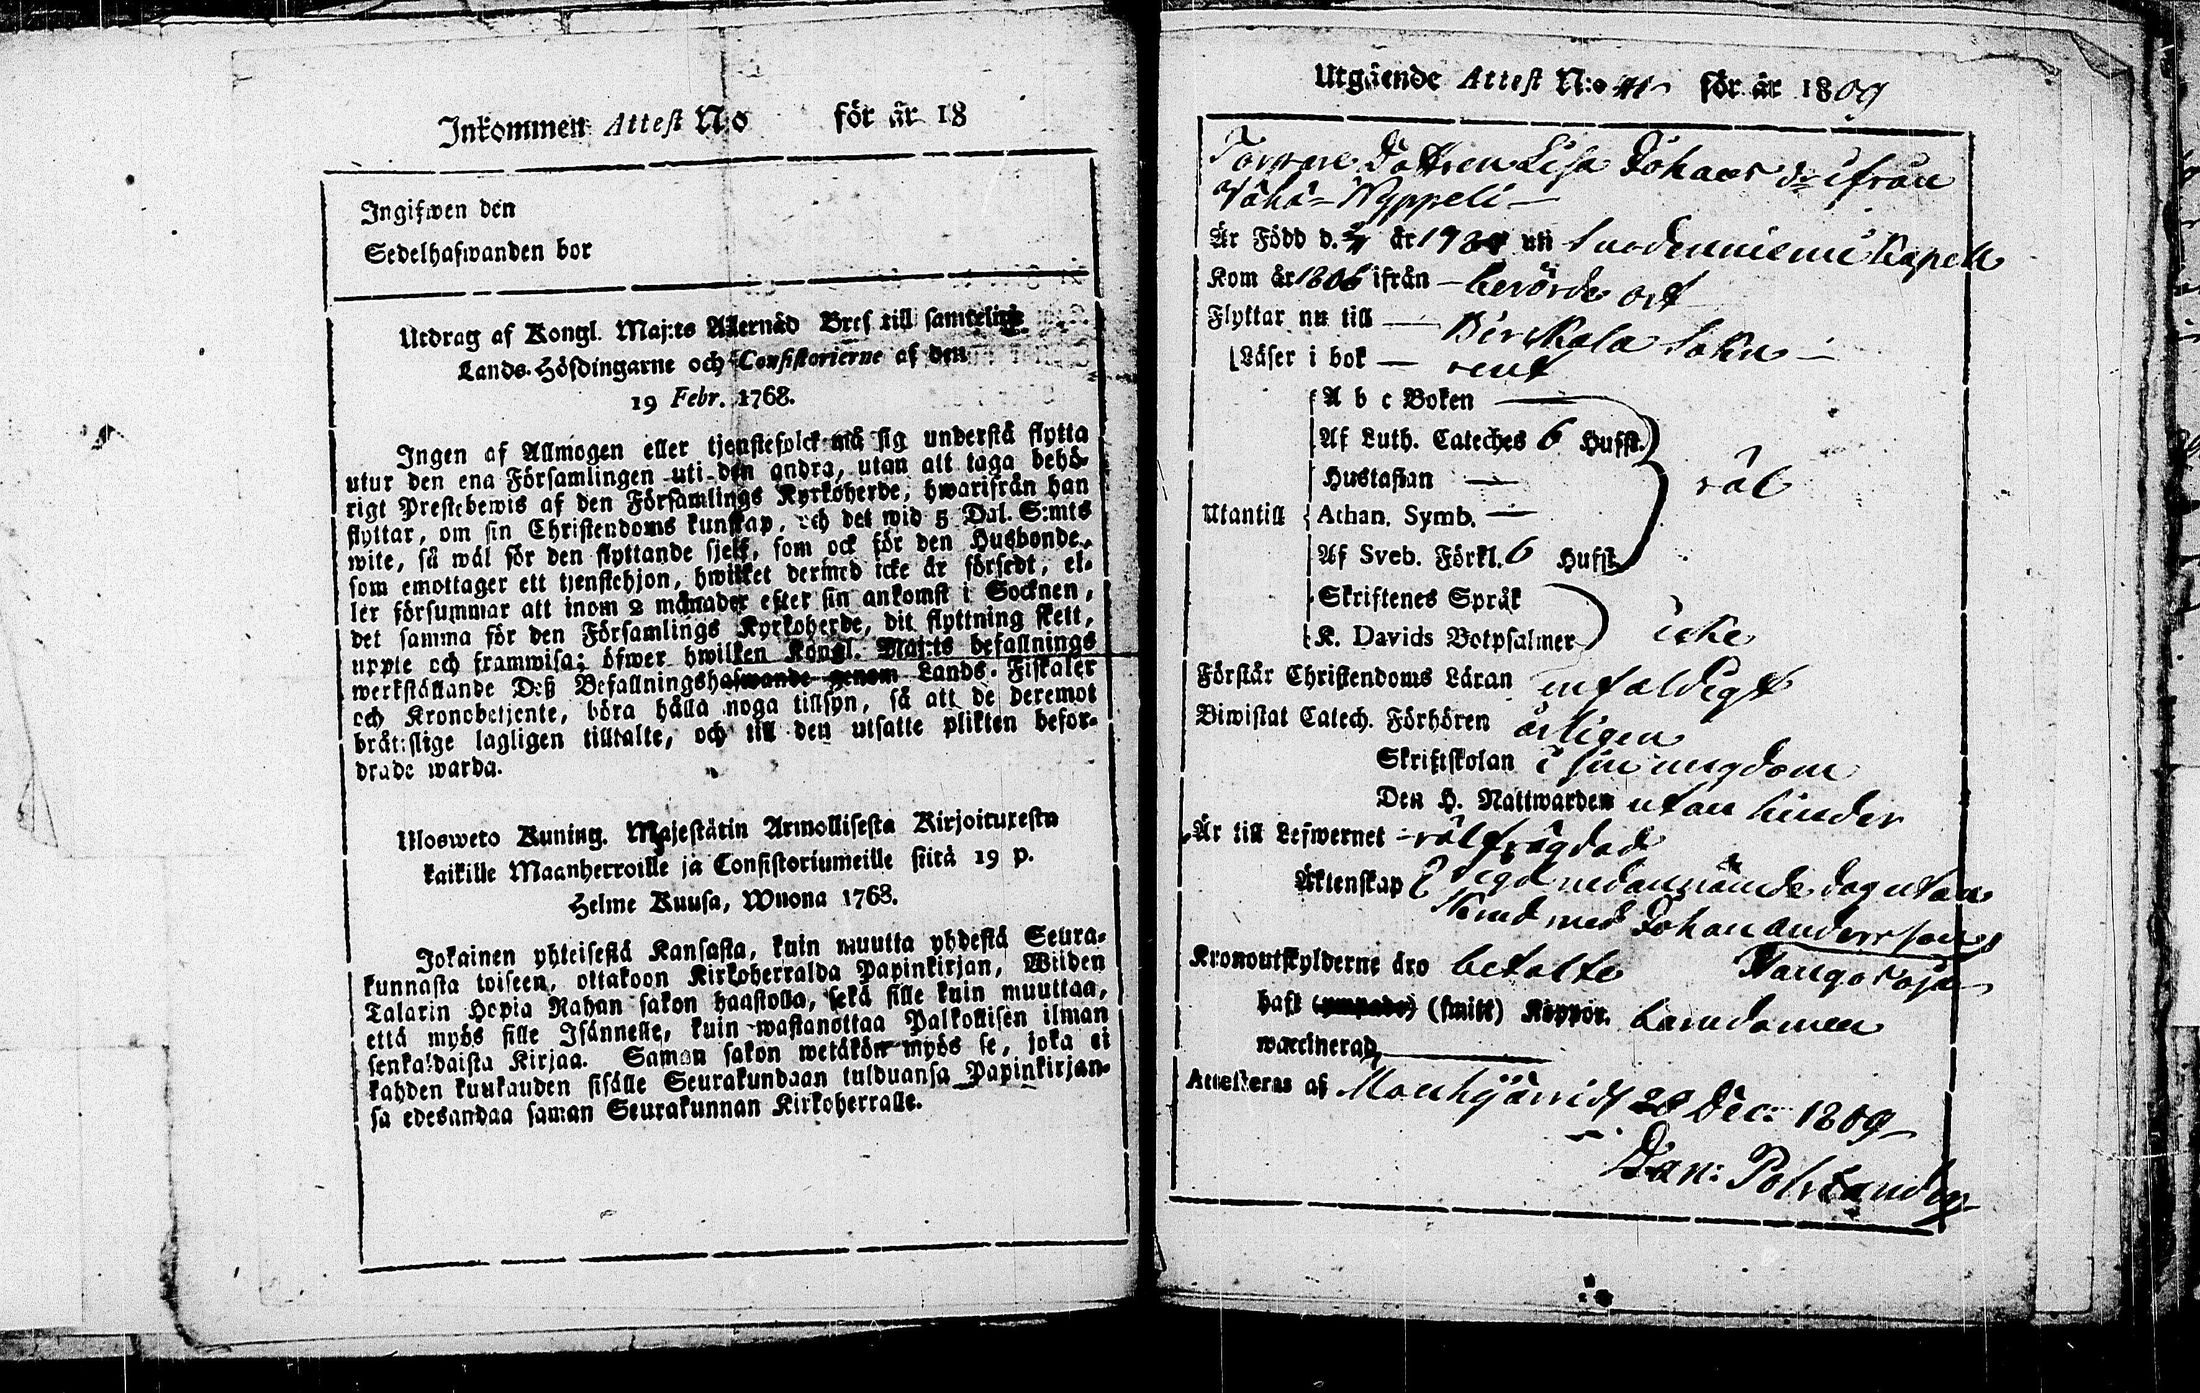 Inkommen Attest N:o för år 18
Ingifwen den
Sedelhafwanden bor
Utdrag af Kongl. Maj:ts Allernåd Bref till samtelige
Lands-Höfdingarne och Consistorierne af den
19 Febr. 1768.
Ingen af Allmogen eller tjenstefolck må sig understå flytta
utur den ena Församlingen uti den andra, utan att taga behö-
rigt Prestebewis af den Församlings Kyrkoherde, hwarifrån han
flyttar, om sin Christendoms kunskap, och det wid 5 Dal. S:mts
wite, så wäl för den flyttande sjelf, som ock för den Husbonde,
som emottager ett tjenstehjon, hwilket dermed icke är försedt, el-
ler försummar att inom 2 månader efter sin ankomst i Socknen,
det samma för den Församlings Kyrkoherde, dit flyttning skett,
uppte och framwisa; öfwer hwilken Kongl. Maj:ts befallnings
werkställande Deß Befallningshafwande genom Lands-Fiskaler
och Kronobetjente, böra hålla noga tillsyn, så att de deremot
bråtslige lagligen tilltalte, och till den utsatte plikten befor-
drade warda.
Ulosweto Kuning. Majestätin Armollisesta Kirjoituxesta
kaikille Maanherroille ja Consistoriumeille siitä 19 p.
Helme Kuusa, Wuona 1768.
Jokainen yhteisestä Kansasta, kuin muutta yhdestä Seura-
kunnasta toiseen, ottakoon Kirkoherralda Papinkirjan, Wiiden
Talarin Hopia Rahan sakon haastolla, sekä sille kuin muuttaa,
että myös sille Isännelle, kuin wastanottaa Palkollisen ilman
senkaldaista Kirjaa. Saman sakon wetäkön myös se, joka ei
kahden kuukauden sisälle Seurakundaan tulduansa Papinkirjan-
sa edesandaa saman Seurakunnan Kirkoherralle.
Utgående Attest N:o för år 1809
Torpare Dottren Lisa Johans dr ifrån
Wähä-Kyppeli
Är Född d. år uti Suodenniemi Kapell
Kom år 1806 ifrån berörde ort
Flyttar nu till Birkala Sokn
Läser i bok rent
A b c Boken
Af Luth. Cateches 6 Hufst.
Hustaflan wäl
Utantill Athan. Symb.
Af Sveb. Förkl. 6 Hufst.
Skriftenes Språk
K. Davids Botpsalmer icke
Förstår Christendoms Läran enfaldigt
Biwistat Catech. Förhören årligen
Skriftskolan i sin ungdom
Den H. Nattwarden utan hinder
Är till Lefwernet wälfrägdad
Äktenskap wigd nedannämde dag utan
hind med Johan Andersson
Kronoutskylderne äro betalte
haft (ympade) (smitt) Koppor. barndomen
waccinerad
Attesteras af Mouhijärwi d 28 Dec: 1809
Dan: Polviander